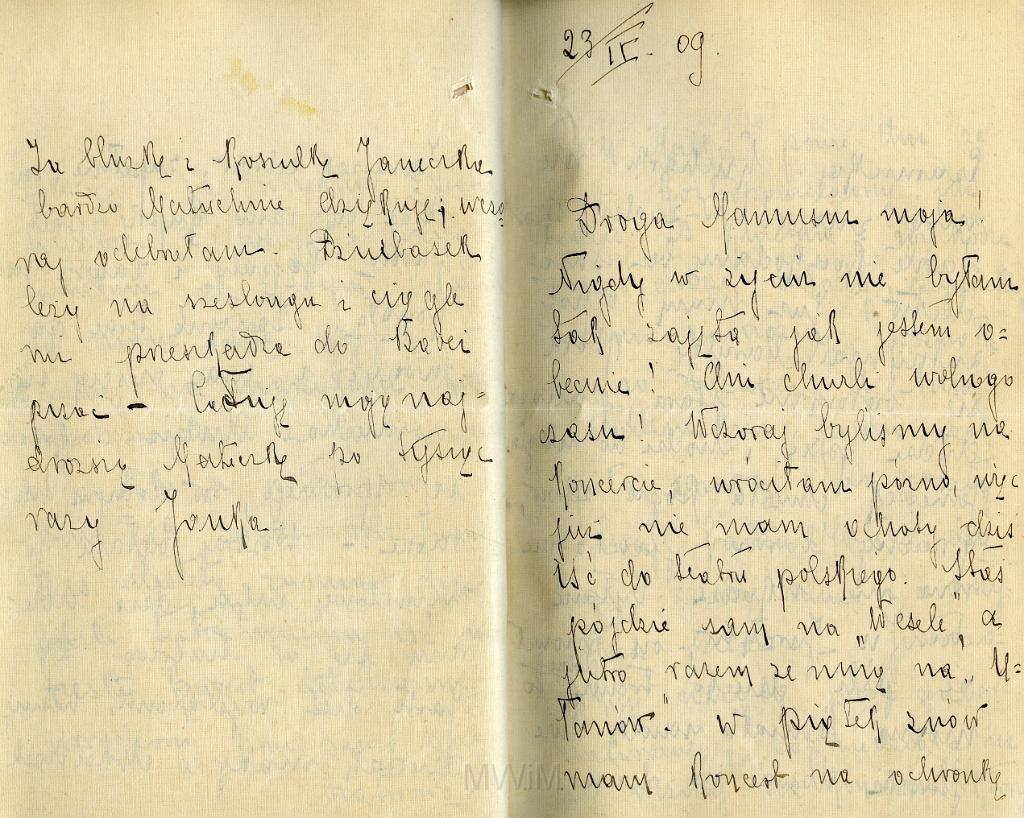 Za bluzkę i koszulkę Janeczka
bardzo Matuchnie dziękuję; wczo
raj odebrałam. Dziubasek
leży na szeslongu i ciągle
mi przeszkadza do Babci
pisać – Całuję moją naj-
droższę Mateczkę po tysięc
razy Janka
23/IX. 09.
Droga Mamusiu moja!
Nigdy w życiu nie byłam
tak zajęta jak jestem o-
becnie! Ani chwili wolnego
czasu! Wczoraj byliśmy na
koncercie, wróciłam późno, więc
już nie mam ochoty dziś
iść do teatru polskiego. Staś
pójdzie sam na „Wesele", a
jutro razem ze mną na „U-
łanów." W piątek znów
mam koncert na ochronkę
MWiM